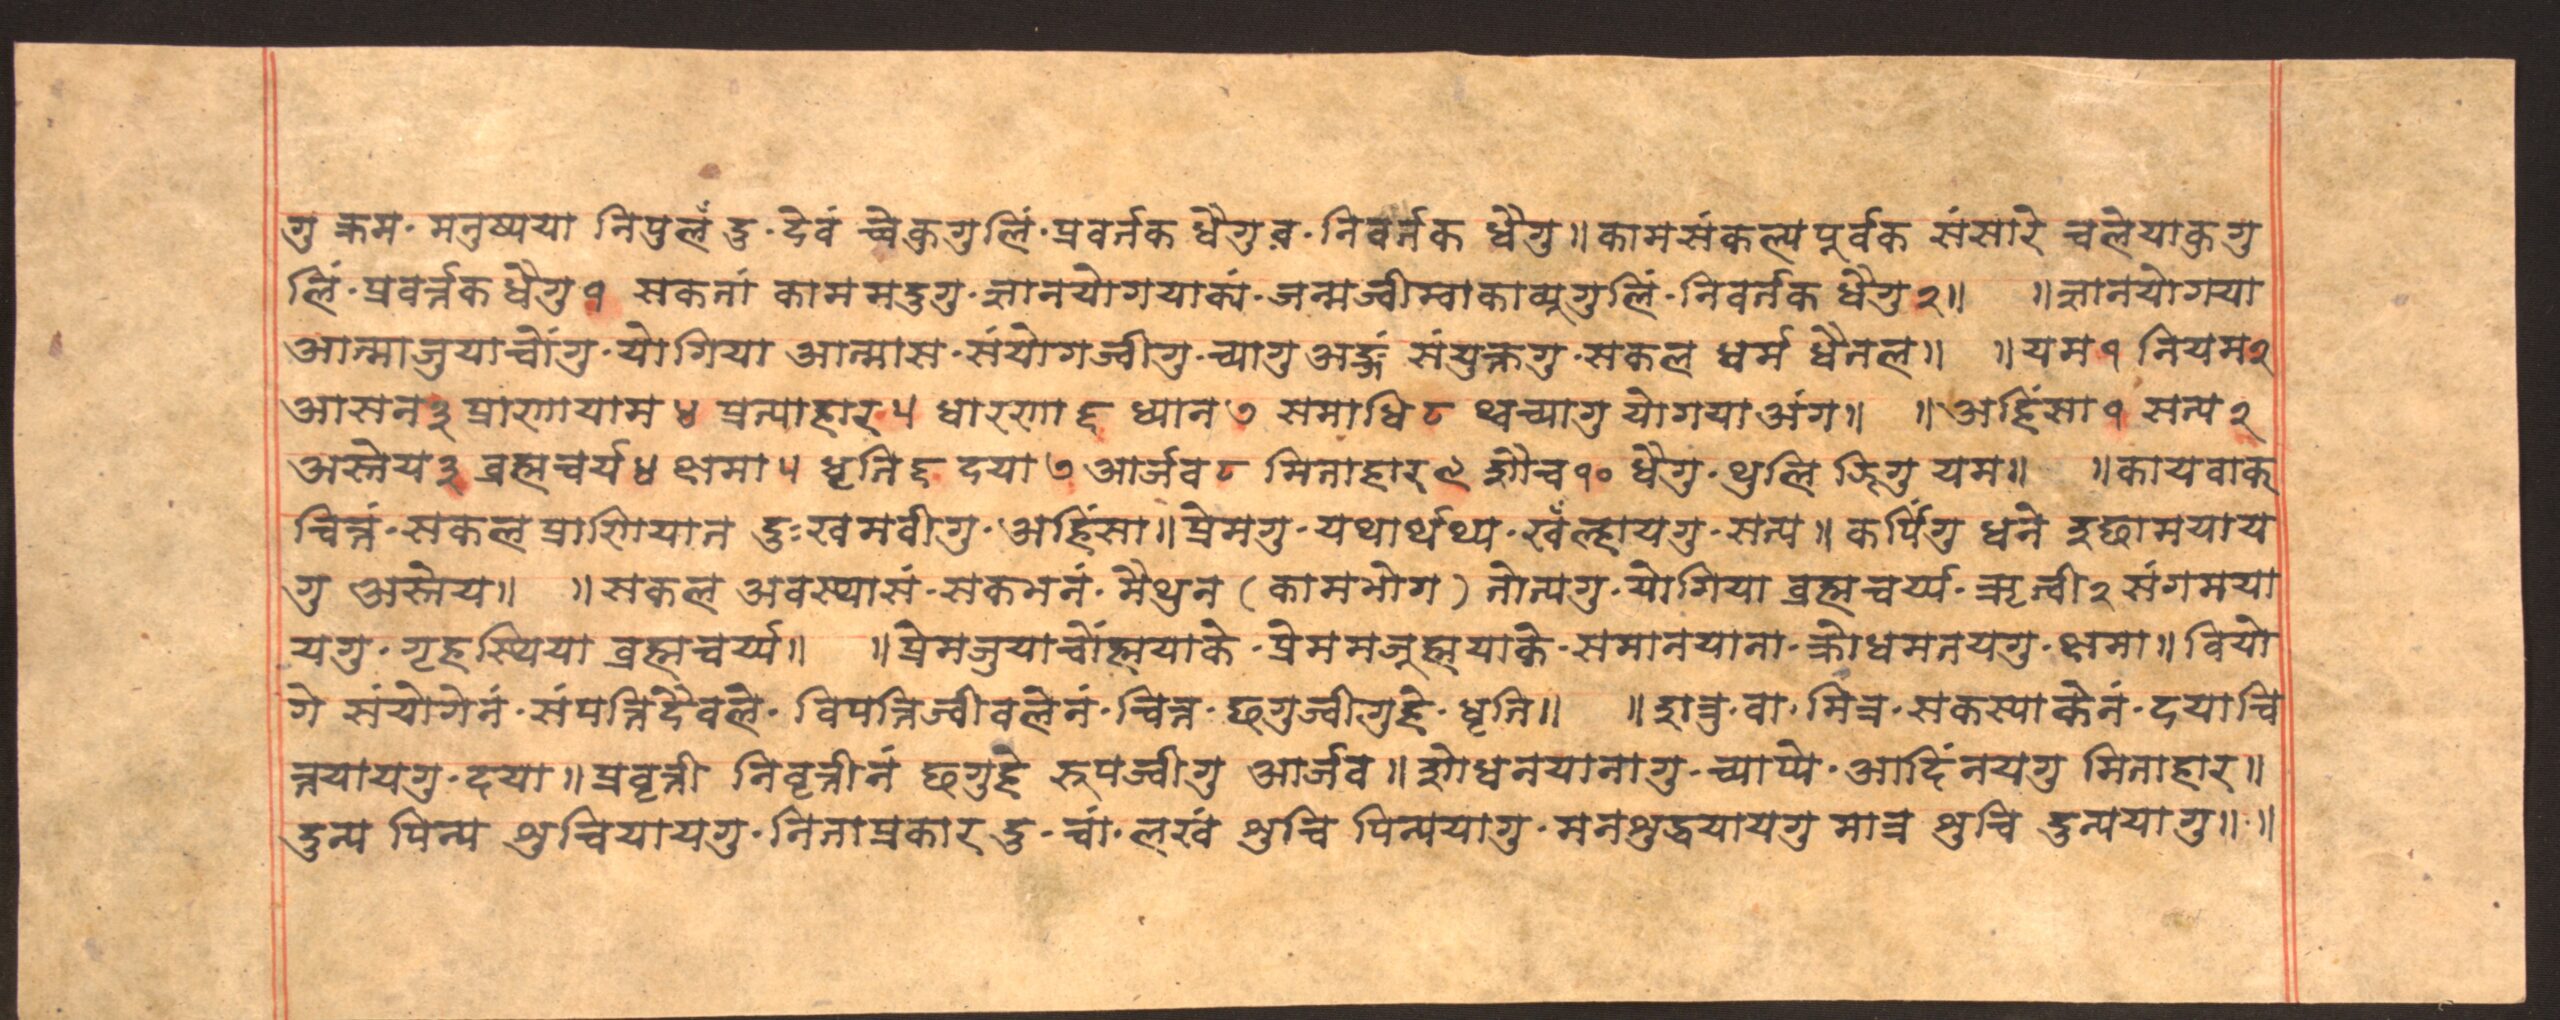 गु क्रम॰ मनुष्यया निपुलँ दु॰ देवं च्वेकुगुलिं॰ प्रवर्तक धैगु व॰ निवर्तक धैगु॥ कामसंकल्प पूर्वक संसारे चलेयाकुगु
लिं॰ प्रवर्त्तक धैगु १ सकतां काममदुगु॰ ज्ञानयोगयाक्यं॰ जन्मज्वीम्वाकाव्यूगुलिं॰ निवर्तक धैगु २॥ ॥ ज्ञानयोगया
आत्माजुयाचोंगु॰ योगिया आत्मास॰ संयोगज्वीगु॰ च्यागु अङ्गं संयुक्तगु॰ सकल धर्म धैतल॥ ॥ यम १ नियम २
आसन ३ प्राणायाम ४ प्रत्याहार ५ धारणा ६ ध्यान ७ समाधि ८ थ्वच्यागु योगया अंग॥ ॥ अहिंसा १ सत्य २
अस्तेय ३ ब्रह्मचर्य ४ क्षमा ५ धृति ६ दया ७ आर्जव ८ मिताहार ९ शौच १० धैगु॰ थुलि झिगु यम॥ ॥ कायवाक्
चित्तं॰ सकल प्राणियात दुःखमवीगु॰ अहिंसा॥ प्रेमगु॰ यथार्थथ्य॰ खँल्हायगु॰ सत्य॥ कर्पिगु धने इछामयाय
गु अस्तेय॥ ॥ सकल अवस्थासं॰ सकभनं॰ मैथुन (कामभोग) तोत्यगु॰ योगिया ब्रह्मचर्य्य॰ ऋत्वी २ संगमया
यगु॰ गृहस्थिया ब्रह्मचर्य्य॥ ॥ प्रेमजुयाचोंह्मयाके॰ प्रेममजूह्मयाके॰ समानयाना॰ क्रोधमतयगु॰ क्षमा॥ वियो
गे संयोगेनं॰ संपत्तिदैवले॰ विपत्तिज्वीवलेनं॰ चित्त॰ छगुज्वीगुहे॰ धृति॥ ॥ शत्रु॰ वा॰ मित्र॰ सकस्याकेनं॰ दयाचि
त्तयायगु॰ दया॥ प्रवृत्ती निवृत्तीनं छगुहे रुपज्वीगु आर्जव॥ शोधनयानागु॰ च्याप्ये॰ आदिंनयगु मिताहार॥
दुत्य पित्य शुचियायगु॰ निताप्रकार दु॰ चां॰ लखं शुचि पित्ययागु॰ मनशुद्धयायगु मात्र शुचि दुत्ययागु॥ ॥